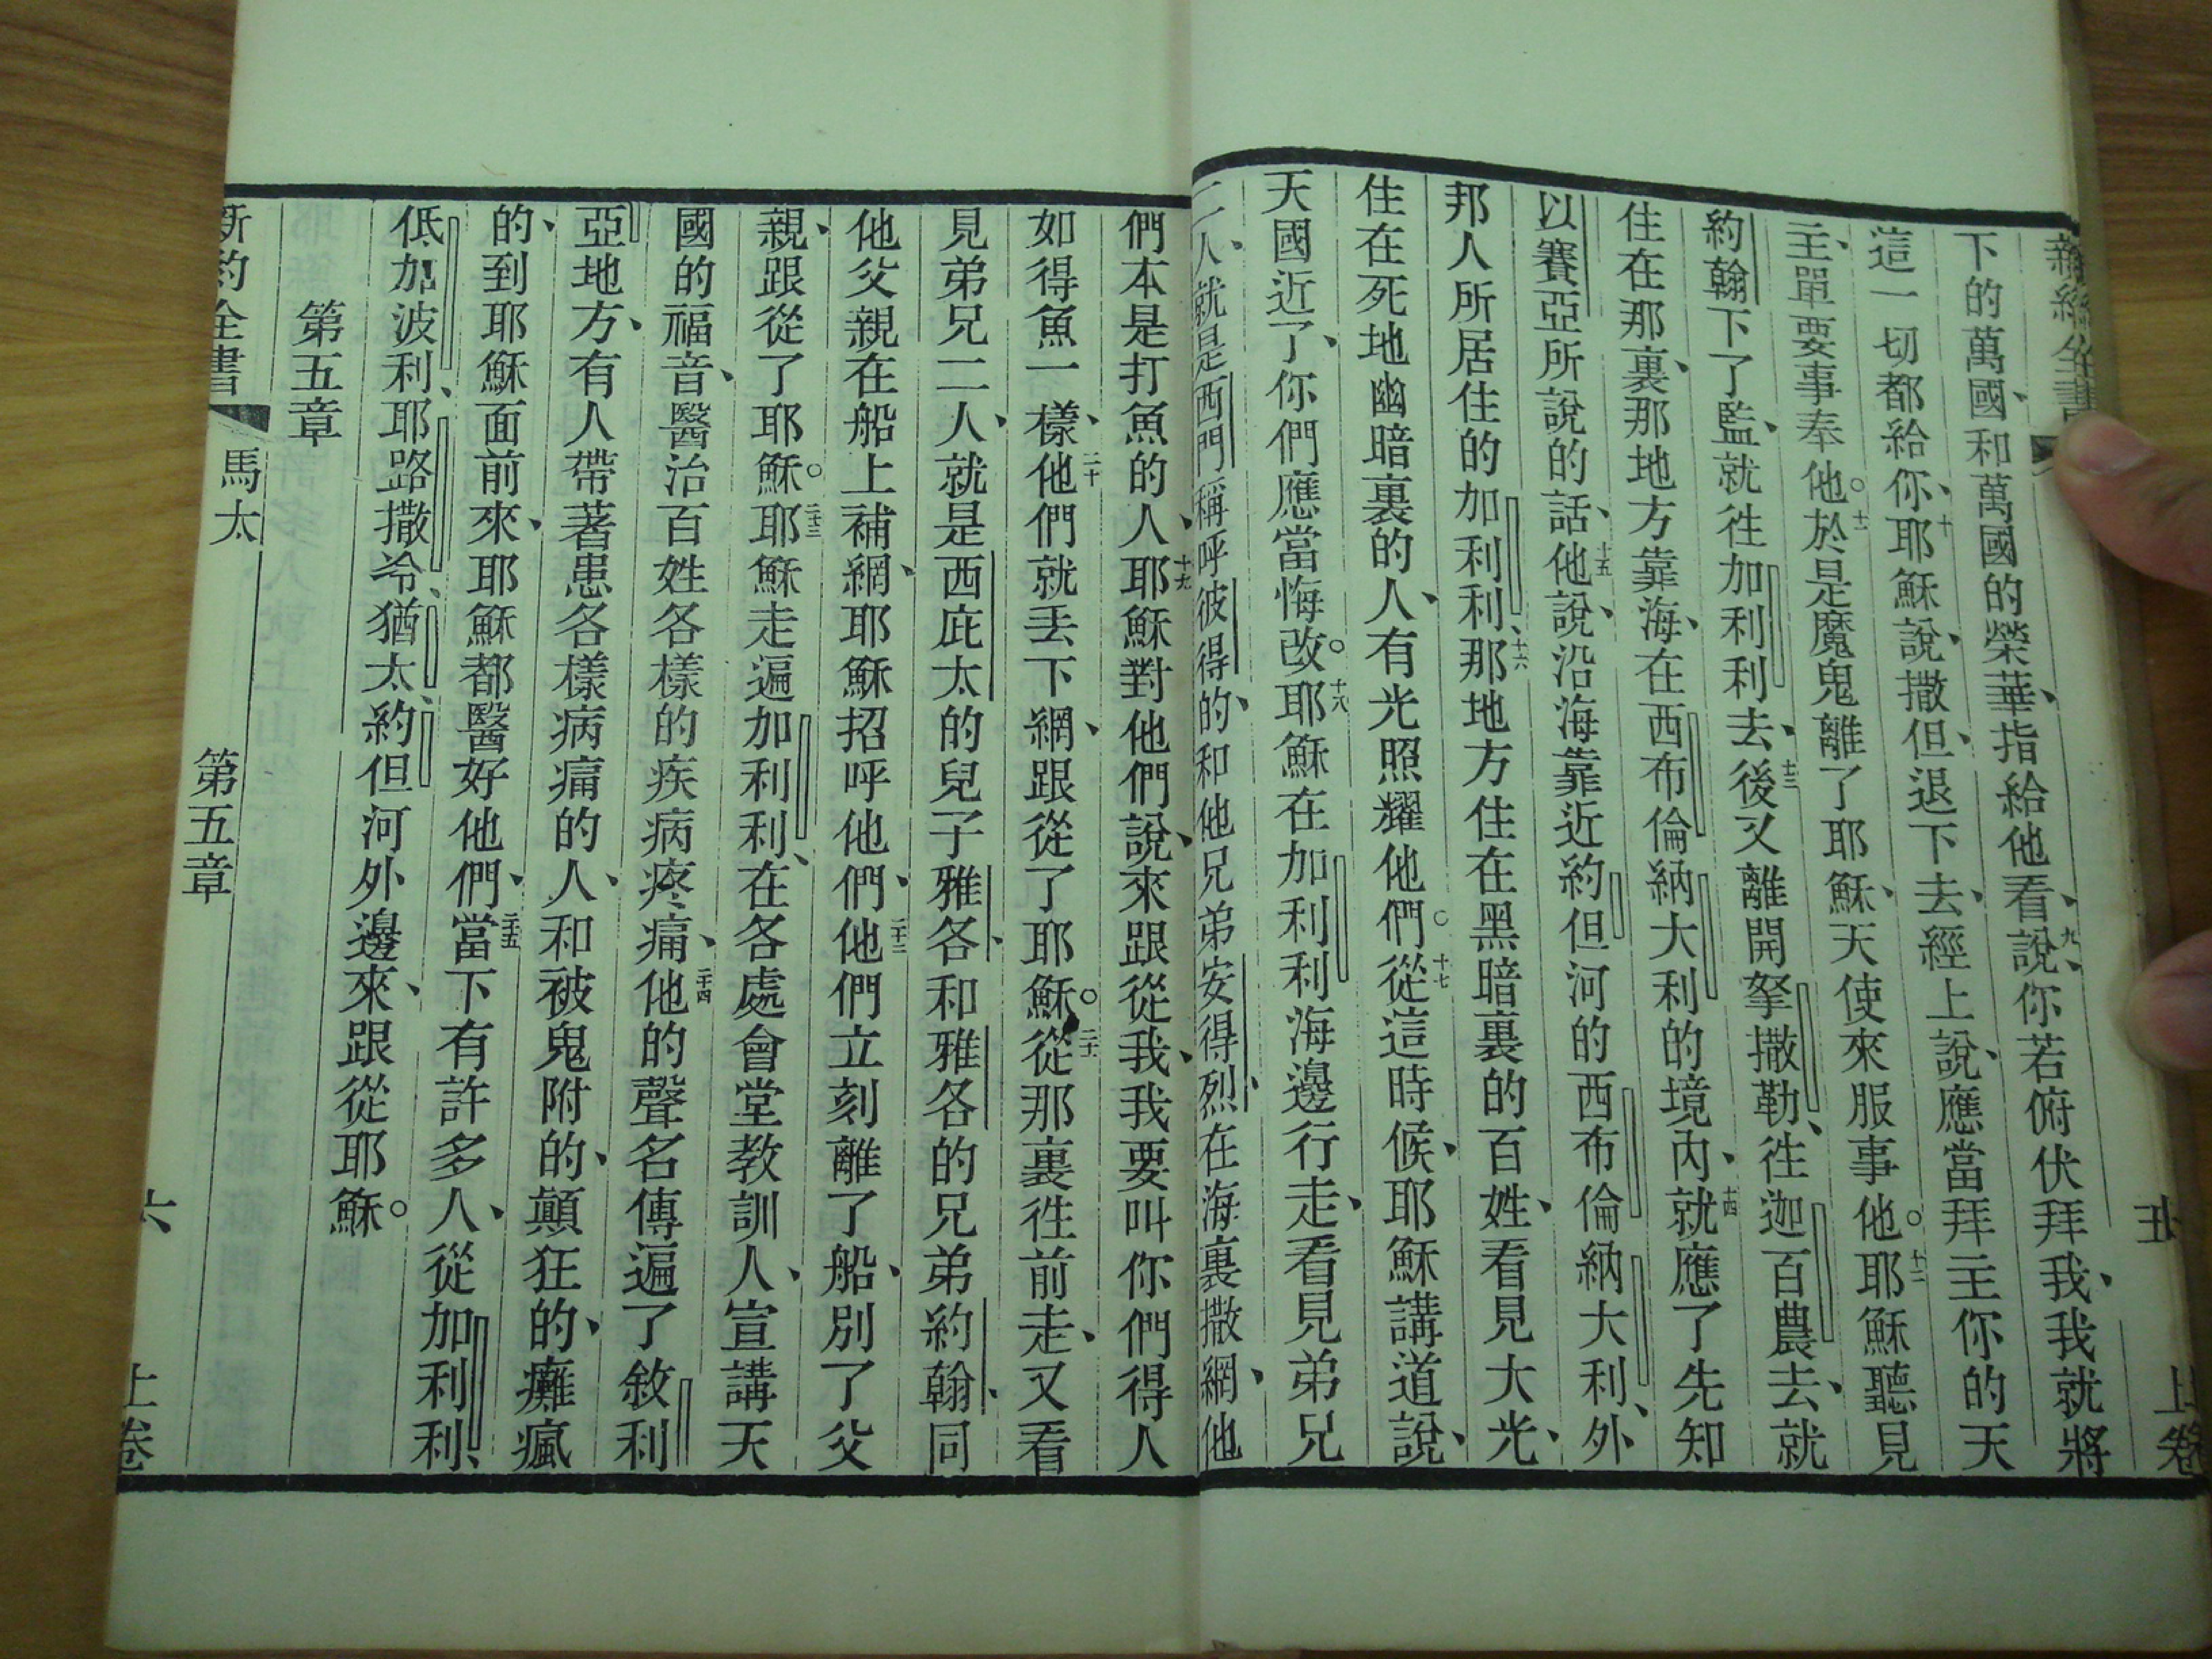 新約全書 五 上卷
下的萬國、和萬國的榮華、指給他看、九說、你若俯伏拜我、我就將
這一切都給你、十耶穌說、撒但、退下去、經上說、應當拜主你的天
主、單要事奉他。十一於是魔鬼離了耶穌、天使來服事他。十二耶穌聽見
約翰下了監、就徃加利利去、十三後又離開拏撒勒、徃迦百農去、就
住在那裏、那地方靠海、在西布倫納大利的境內、十四就應了先知
以賽亞所說的話、十五他說、沿海靠近約但河的西布倫納大利、外
邦人所居住的加利利、十六那地方住在黑暗裏的百姓、看見大光、
住在死地幽暗裏的人、有光照耀他們。十七從這時候、耶穌講道說、
天國近了、你們應當悔改。十八耶穌在加利利海邊行走、看見弟兄
二人、就是西門稱呼彼得的、和他兄弟安得烈、在海裏撒網、他
們本是打魚的人、十九耶穌對他們說、來跟從我、我要叫你們得人
如得魚一樣、二十他們就丟下網、跟從了耶穌。二十一從那裏徃前走、又看
見弟兄二人、就是西庇太的兒子雅各、和雅各的兄弟約翰、同
他父親在船上補網、耶穌招呼他們、二十二他們立刻離了船、別了父
親、跟從了耶穌。二十三耶穌走遍加利利、在各處會堂教訓人、宣講天
國的福音、醫治百姓各樣的疾病疼痛、二十四他的聲名傳遍了敘利
亞地方、有人帶著患各樣病痛的人、和被鬼附的、顛狂的、癱瘋
的、到耶穌面前來、耶穌都醫好他們、二十五當下有許多人、從加利利、
低加波利、耶路撒冷、猶太、約但河外邊來、跟從耶穌。
第五章
新約全書 馬太 第五章 六 上卷